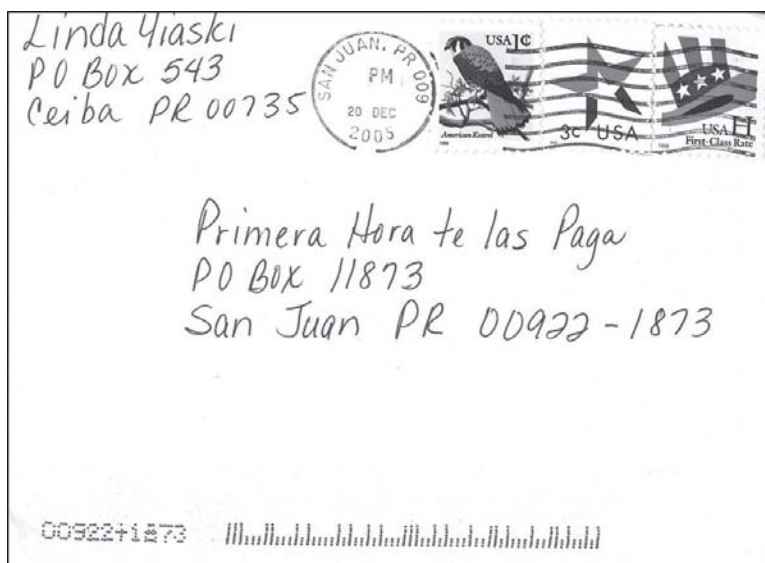 Linda Yiaski
PO Box 543
Ceiba PR 00735
SAN JUAN, PR 009
PM
20 DEC
2005
USA 1¢
American Kestrel
1999
3¢ USA
USA H
First-Class Rate
1998
Primera Hora te las Paga
PO BOX 11873
San Juan PR 00922-1873
00922+1873